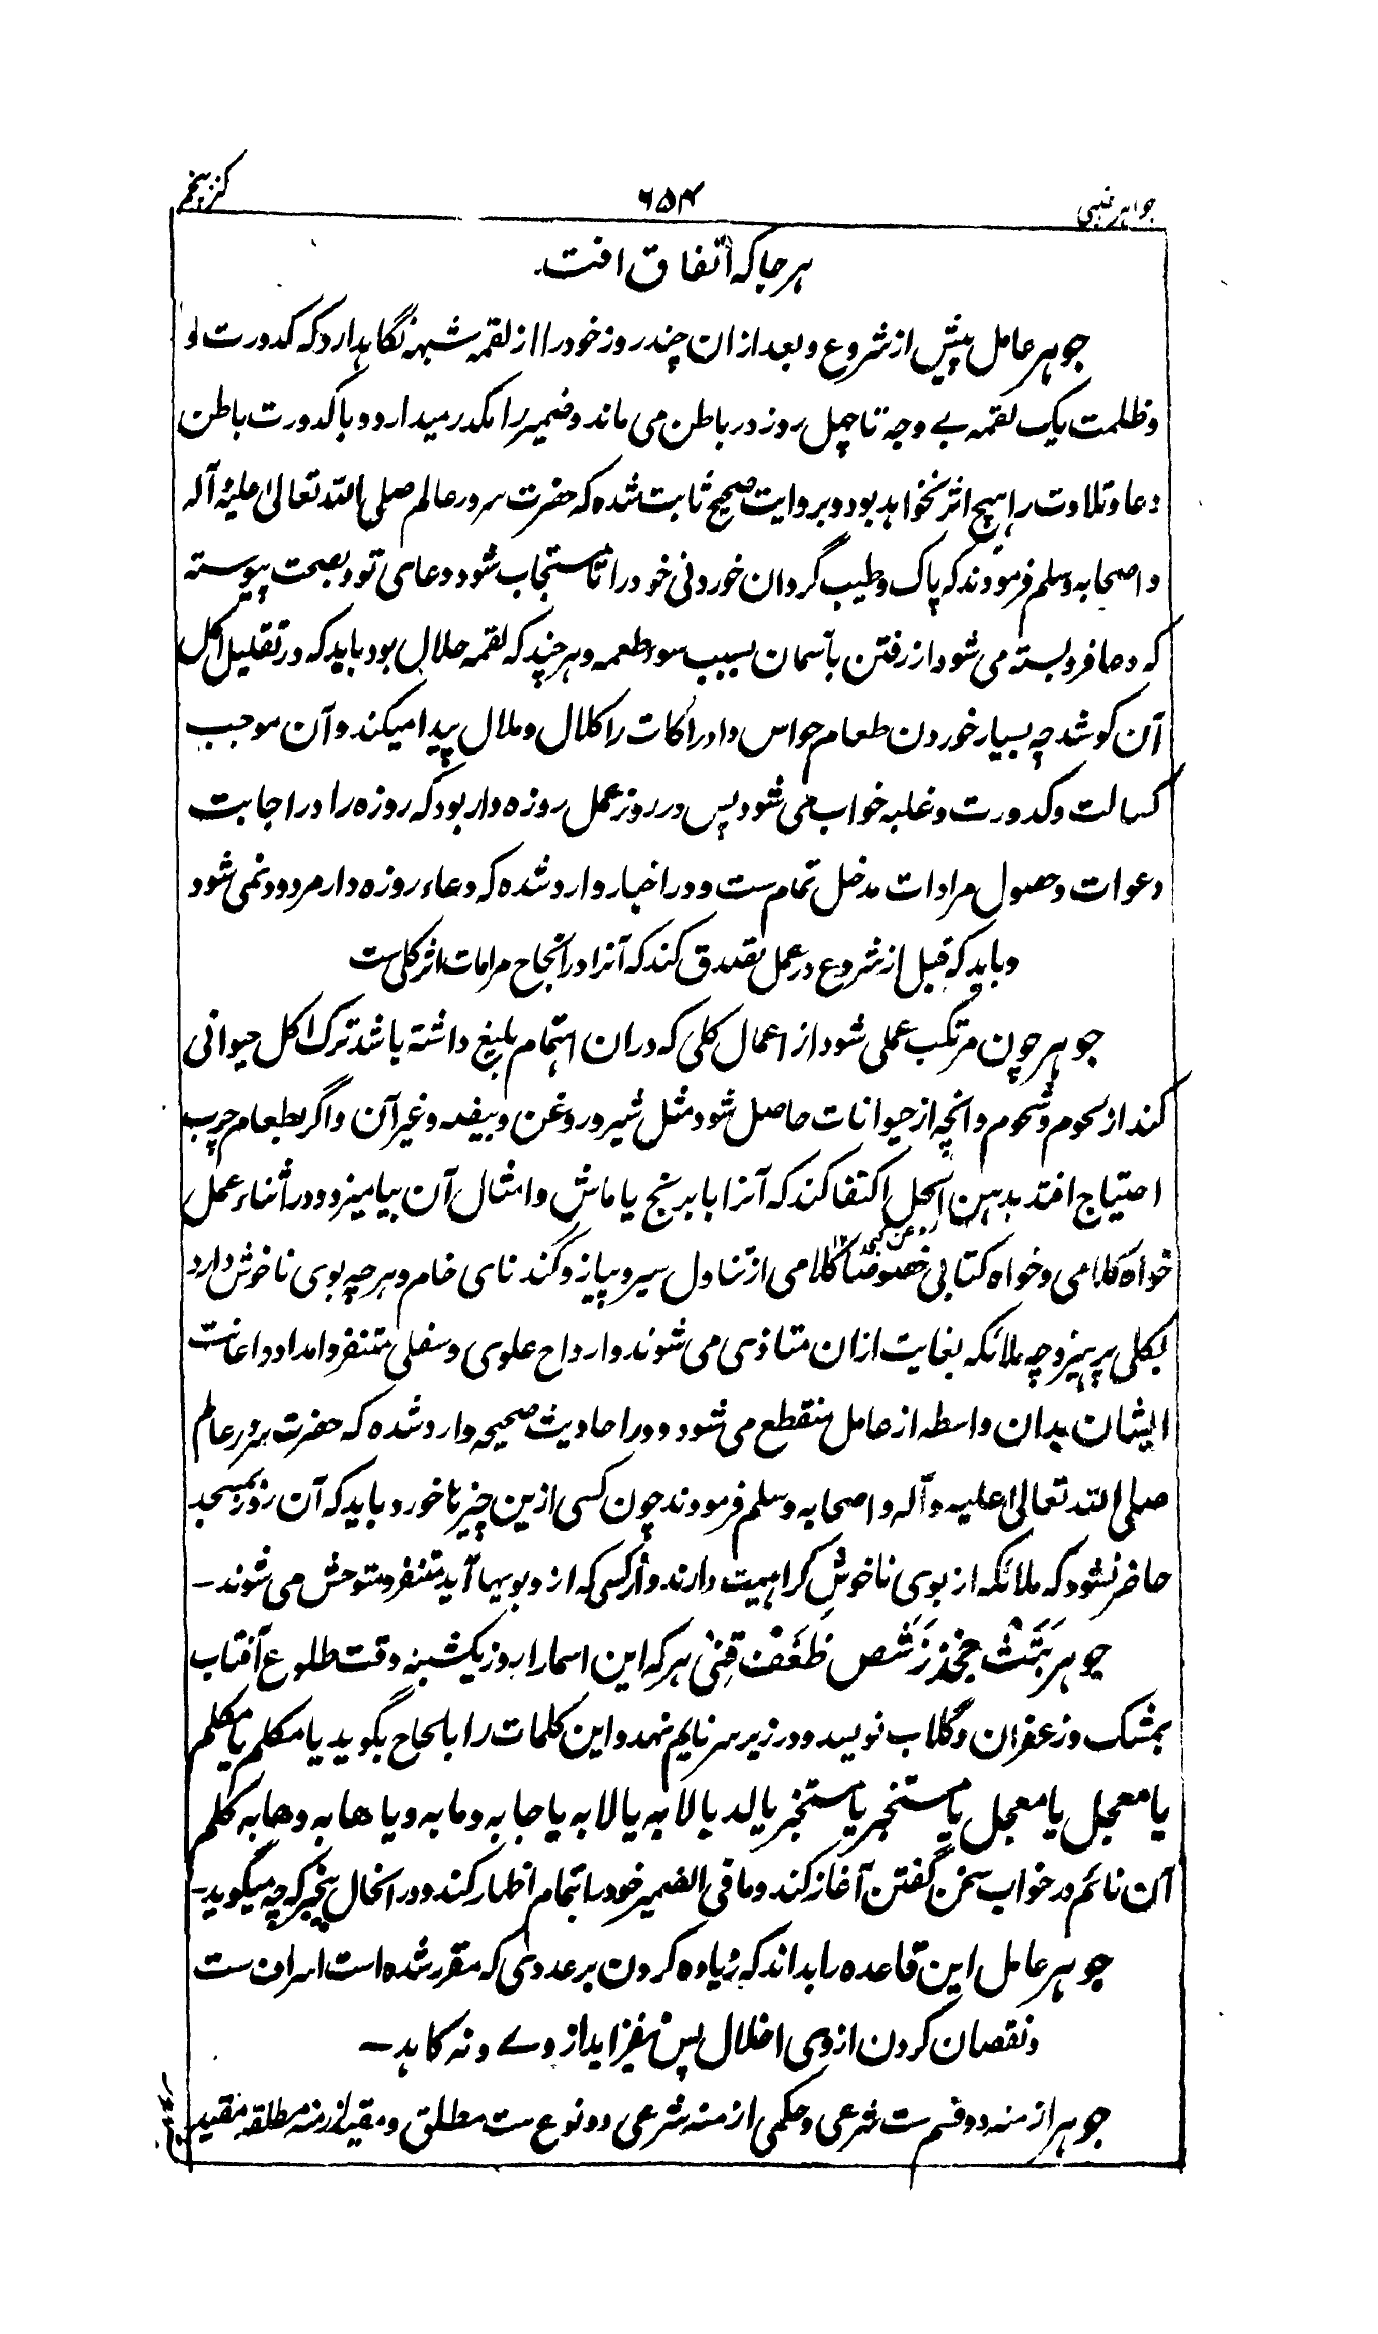 جواہر غیبی
۶۵۴
کنز پنجم
ہر جا کہ اتفاق افتد
جوہر عامل پیش از شروع و بعد ازان چند روز خود را از لقمہ شبہہ نگاہدارد کہ کدورت او
و ظلمت یک لقمہ بے وجہ تا چہل روز در باطن می ماند و ضمیر را مکدر میدارد و با کدورت باطن
دعا و تلاوت را ہیچ اثر نخواہد بود و بروایت صحیح ثابت شدہ کہ حضرت سرور عالم صلی اللہ تعالیٰ علیہ وآلہ
و اصحابہ وسلم فرمودند کہ پاک و طیب گردان خوردنی خود را تا مستجاب شود دعای تو و بصحت پیوستہ
کہ دعا فرو بستہ می شود از رفتن بآسمان بسبب سوء طعمہ و ہر چند کہ لقمہ حلال بود باید کہ در تقلیل اکل
آن کوشد چہ بسیار خوردن طعام حواس و ادراکات را کلال و ملال پیدا میکند و آن موجب
کسالت و کدورت و غلبہ خواب می شود پس در روز عمل روزہ دار بود کہ روزہ را در اجابت
دعوات و حصول مرادات مدخل تمام ست و در اخبار وارد شدہ کہ دعاء روزہ دار مردود نمی شود
و باید کہ قبل از شروع در عمل تصدق کند کہ آنرا در انجاح مرامات اثر کلی ست
جوہر چون مرتکب عملی شود از اعمال کلی کہ دران اہتمام بلیغ داشتہ باشد ترک اکل حیوانی
کند از لحوم و شحوم و انچہ از حیوانات حاصل شود مثل شیر و روغن و بیضہ و غیر آن و اگر بطعام چرب
احتیاج افتد بدہن الحل اکتفا کند کہ آنرا با برنج یا ماش و امثال آن بیامیزد و در اثناء عمل
روغن کنجد ۱۲
خواہ کلامی و خواہ کتابی خصوصًا کلامی از تناول سیر و پیاز و گندنای خام و ہر چہ بوی ناخوش دارد
بکلی پرہیزد چہ ملائکہ بغایت ازان متاذی می شوند و ارواح علوی و سفلی متنفر و امداد و اعانت
ایشان بدان واسطہ از عامل منقطع می شود و در احادیث صحیحہ وارد شدہ کہ حضرت سرور عالم
صلی اللہ تعالیٰ علیہ وآلہ و اصحابہ وسلم فرمودند چون کسی ازین چیزہا خورد باید کہ آن روز بمسجد
حاضر نشود کہ ملائکہ از بوی ناخوش کراہیت دارند و از کسی کہ ازو بویہا آید متنفر و متوحش می شوند۔
جوہر بَتَثْ جحخذ زَشَص ظَعَفْ قِنْ ہر کہ این اسما را بروز یکشنبہ وقت طلوع آفتاب
بمشک و زعفران و گلاب نویسد و در زیر سر نایم نہد و این کلمات را بالحاح بگوید یا مکلم یا مکلم
یا معجل یا معجل یا مستخبر یا مستخبر یا لد یا لابہ یا لابہ یا جابہ و مابہ و یا ھابہ و ھابہ کلم
آن نائم در خواب سخن گفتن آغاز کند و ما فی الضمیر خود را بتمام اظہار کند و در انحال بیخبر کہ چہ میگوید۔
جوہر عامل این قاعدہ را بداند کہ زیادہ کردن بر عددی کہ مقرر شدہ است اسراف ست
و نقصان کردن از وی اخلال پس نیفزاید از وے و نہ کاہد ۔
جوہر ازمنہ دو قسم ست شرعی و حکمی ازمنہ شرعی دو نوع ست مطلق و مقید ازمنہ مطلقہ مقید